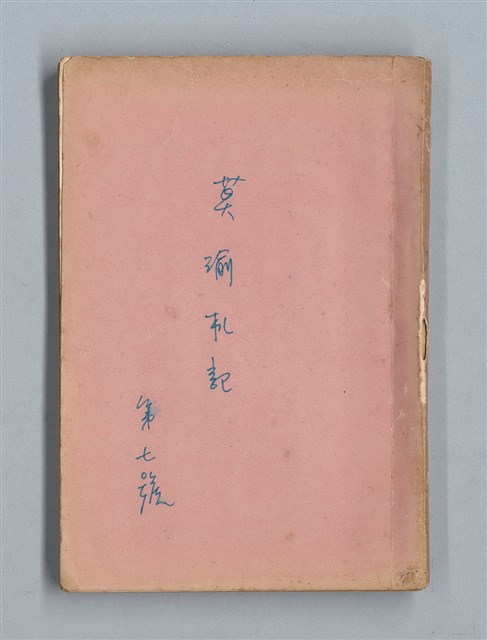 莫瑜札記
第七號